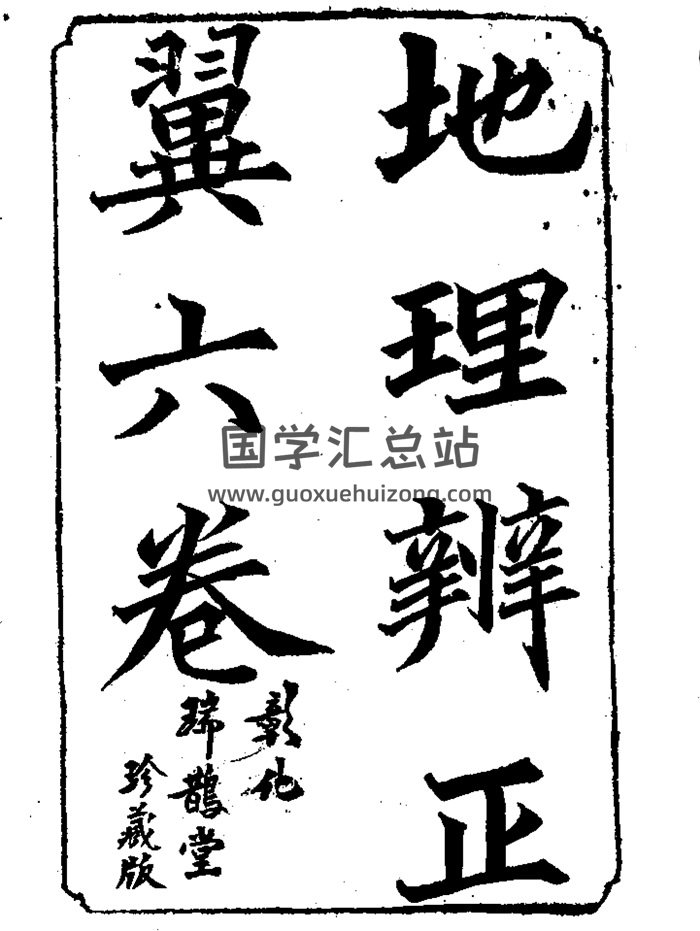 地理辨正
翼六卷
彰化
瑞鵲堂
珍藏版
国学汇总站
www.guoxuehuizong.com